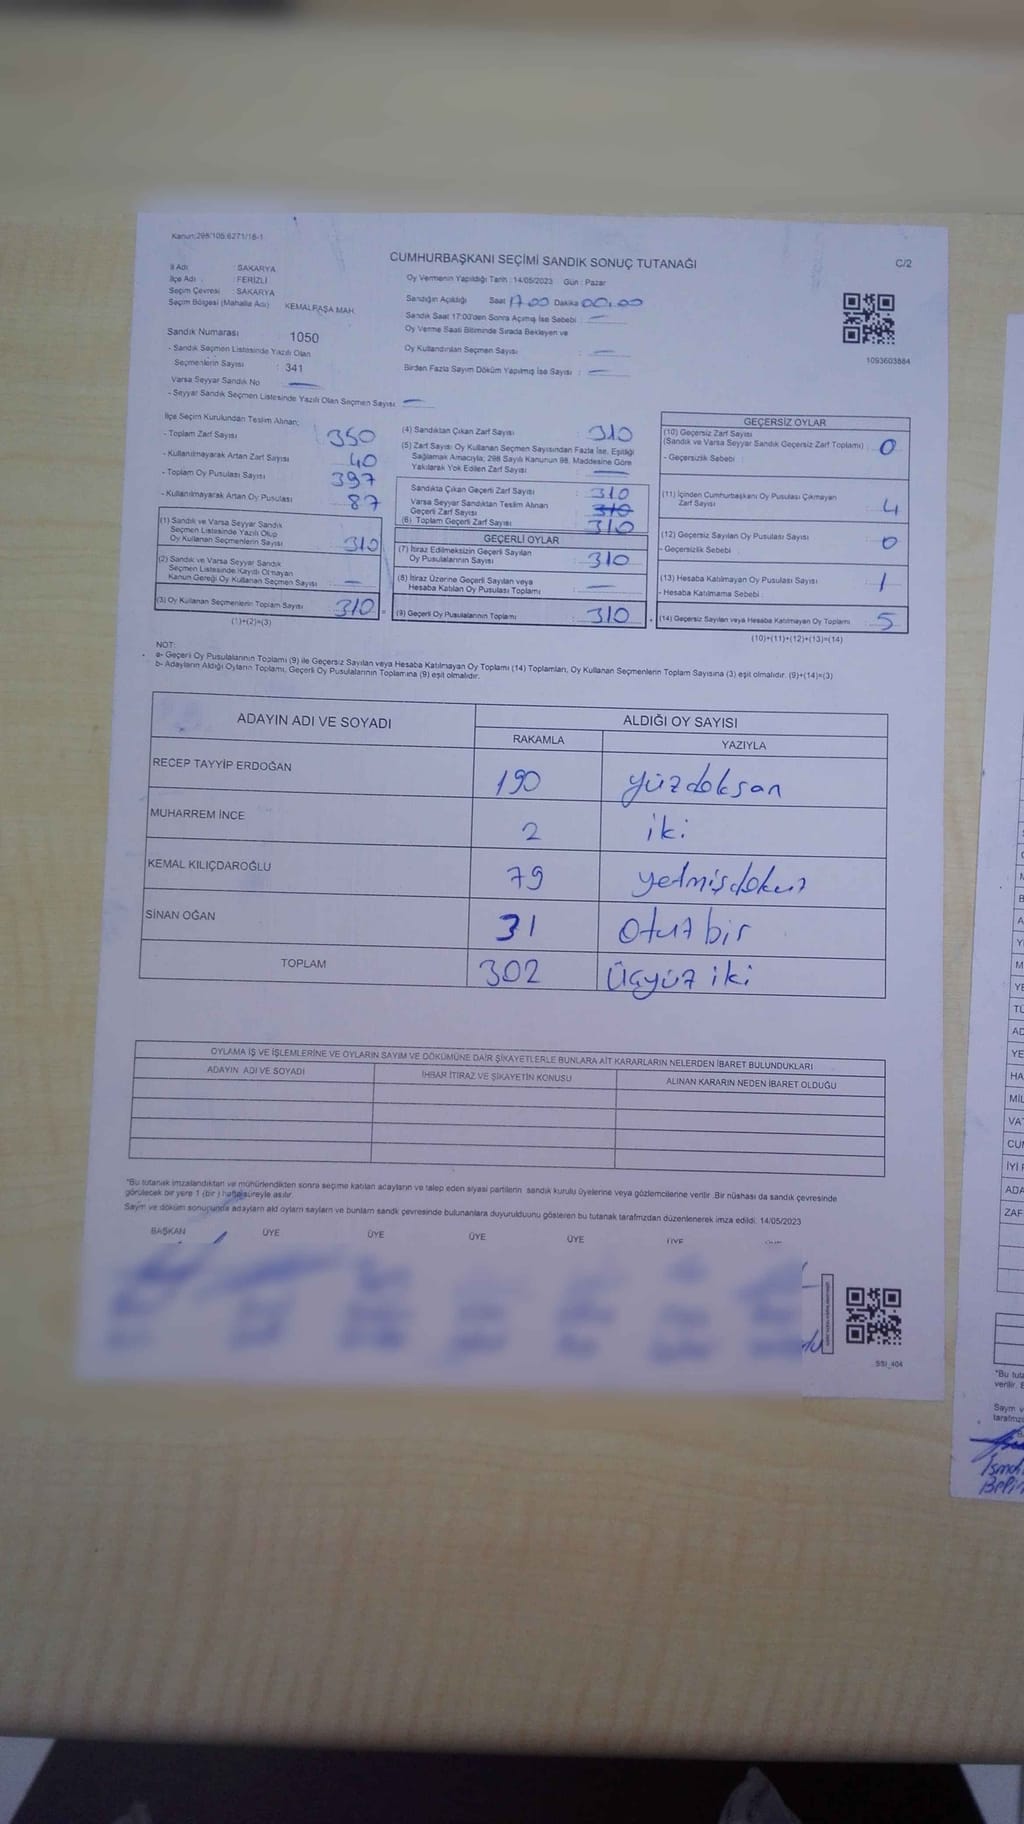 Kanun:298/105;6271/18-1
CUMHURBAŞKANI SEÇİMİ SANDIK SONUÇ TUTANAĞI
C/2
İl Adı : SAKARYA
İlçe Adı : FERİZLİ
Seçim Çevresi : SAKARYA
Seçim Bölgesi (Mahalle Adı) KEMALPAŞA MAH.
Oy Vermenin Yapıldığı Tarih : 14/05/2023 Gün : Pazar
Sandığın Açıldığı Saat 17.00 Dakika 00.00
Sandık Saat 17:00'den Sonra Açılmış İse Sebebi : —
Oy Verme Saati Bitiminde Sırada Bekleyen ve
Oy Kullandırılan Seçmen Sayısı : —
Birden Fazla Sayım Döküm Yapılmış İse Sayısı : —
1093603884
Sandık Numarası 1050
- Sandık Seçmen Listesinde Yazılı Olan
Seçmenlerin Sayısı : 341
Varsa Seyyar Sandık No —
- Seyyar Sandık Seçmen Listesinde Yazılı Olan Seçmen Sayısı —
İlçe Seçim Kurulundan Teslim Alınan;
- Toplam Zarf Sayısı : 350
- Kullanılmayarak Artan Zarf Sayısı : 40
- Toplam Oy Pusulası Sayısı : 397
- Kullanılmayarak Artan Oy Pusulası : 87
(1) Sandık ve Varsa Seyyar Sandık
Seçmen Listesinde Yazılı Olup
Oy Kullanan Seçmenlerin Sayısı : 310
(2) Sandık ve Varsa Seyyar Sandık
Seçmen Listesinde Kayıtlı Olmayan
Kanun Gereği Oy Kullanan Seçmen Sayısı : —
(3) Oy Kullanan Seçmenlerin Toplam Sayısı : 310 =
(1)+(2)=(3)
(4) Sandıktan Çıkan Zarf Sayısı : 310
(5) Zarf Sayısı Oy Kullanan Seçmen Sayısından Fazla İse, Eşitliği
Sağlamak Amacıyla; 298 Sayılı Kanunun 98. Maddesine Göre
Yakılarak Yok Edilen Zarf Sayısı : —
Sandıkta Çıkan Geçerli Zarf Sayısı : 310
Varsa Seyyar Sandıktan Teslim Alınan
Geçerli Zarf Sayısı : 310
(6) Toplam Geçerli Zarf Sayısı : 310
GEÇERLİ OYLAR
(7) İtiraz Edilmeksizin Geçerli Sayılan
Oy Pusulalarının Sayısı : 310
(8) İtiraz Üzerine Geçerli Sayılan veya
Hesaba Katılan Oy Pusulası Toplamı : —
(9) Geçerli Oy Pusulalarının Toplamı : 310 +
GEÇERSİZ OYLAR
(10) Geçersiz Zarf Sayısı
(Sandık ve Varsa Seyyar Sandık Geçersiz Zarf Toplamı) : 0
- Geçersizlik Sebebi :
(11) İçinden Cumhurbaşkanı Oy Pusulası Çıkmayan
Zarf Sayısı : 4
(12) Geçersiz Sayılan Oy Pusulası Sayısı : 0
- Geçersizlik Sebebi :
(13) Hesaba Katılmayan Oy Pusulası Sayısı : 1
- Hesaba Katılmama Sebebi :
(14) Geçersiz Sayılan veya Hesaba Katılmayan Oy Toplamı : 5
(10)+(11)+(12)+(13)=(14)
NOT:
a- Geçerli Oy Pusulalarının Toplamı (9) ile Geçersiz Sayılan veya Hesaba Katılmayan Oy Toplamı (14) Toplamları, Oy Kullanan Seçmenlerin Toplam Sayısına (3) eşit olmalıdır. (9)+(14)=(3)
b- Adayların Aldığı Oyların Toplamı, Geçerli Oy Pusulalarının Toplamına (9) eşit olmalıdır.
ADAYIN ADI VE SOYADI
ALDIĞI OY SAYISI
RAKAMLA YAZIYLA
RECEP TAYYİP ERDOĞAN 190 yüzdoksan
MUHARREM İNCE 2 iki
KEMAL KILIÇDAROĞLU 79 yetmişdokuz
SİNAN OĞAN 31 otuzbir
TOPLAM 302 üçyüz iki
OYLAMA İŞ VE İŞLEMLERİNE VE OYLARIN SAYIM VE DÖKÜMÜNE DAİR ŞİKAYETLERLE BUNLARA AİT KARARLARIN NELERDEN İBARET BULUNDUKLARI
ADAYIN ADI VE SOYADI İHBAR İTİRAZ VE ŞİKAYETİN KONUSU ALINAN KARARIN NEDEN İBARET OLDUĞU
*Bu tutanak imzalandıktan ve mühürlendikten sonra seçime katılan adayların ve talep eden siyasi partilerin sandık kurulu üyelerine veya gözlemcilerine verilir. Bir nüshası da sandık çevresinde
görülecek bir yere 1 (bir ) hafta süreyle asılır.
Sayım ve döküm sonucunda adayların aldı oyların sayıları ve bunların sandık çevresinde bulunanlara duyurulduunu gösteren bu tutanak tarafımzdan düzenlenerek imza edildi. 14/05/2023
BAŞKAN ÜYE ÜYE ÜYE ÜYE ÜYE
SSI_404
*Bu tuta
verilir. B
Sayım v
tarafımz